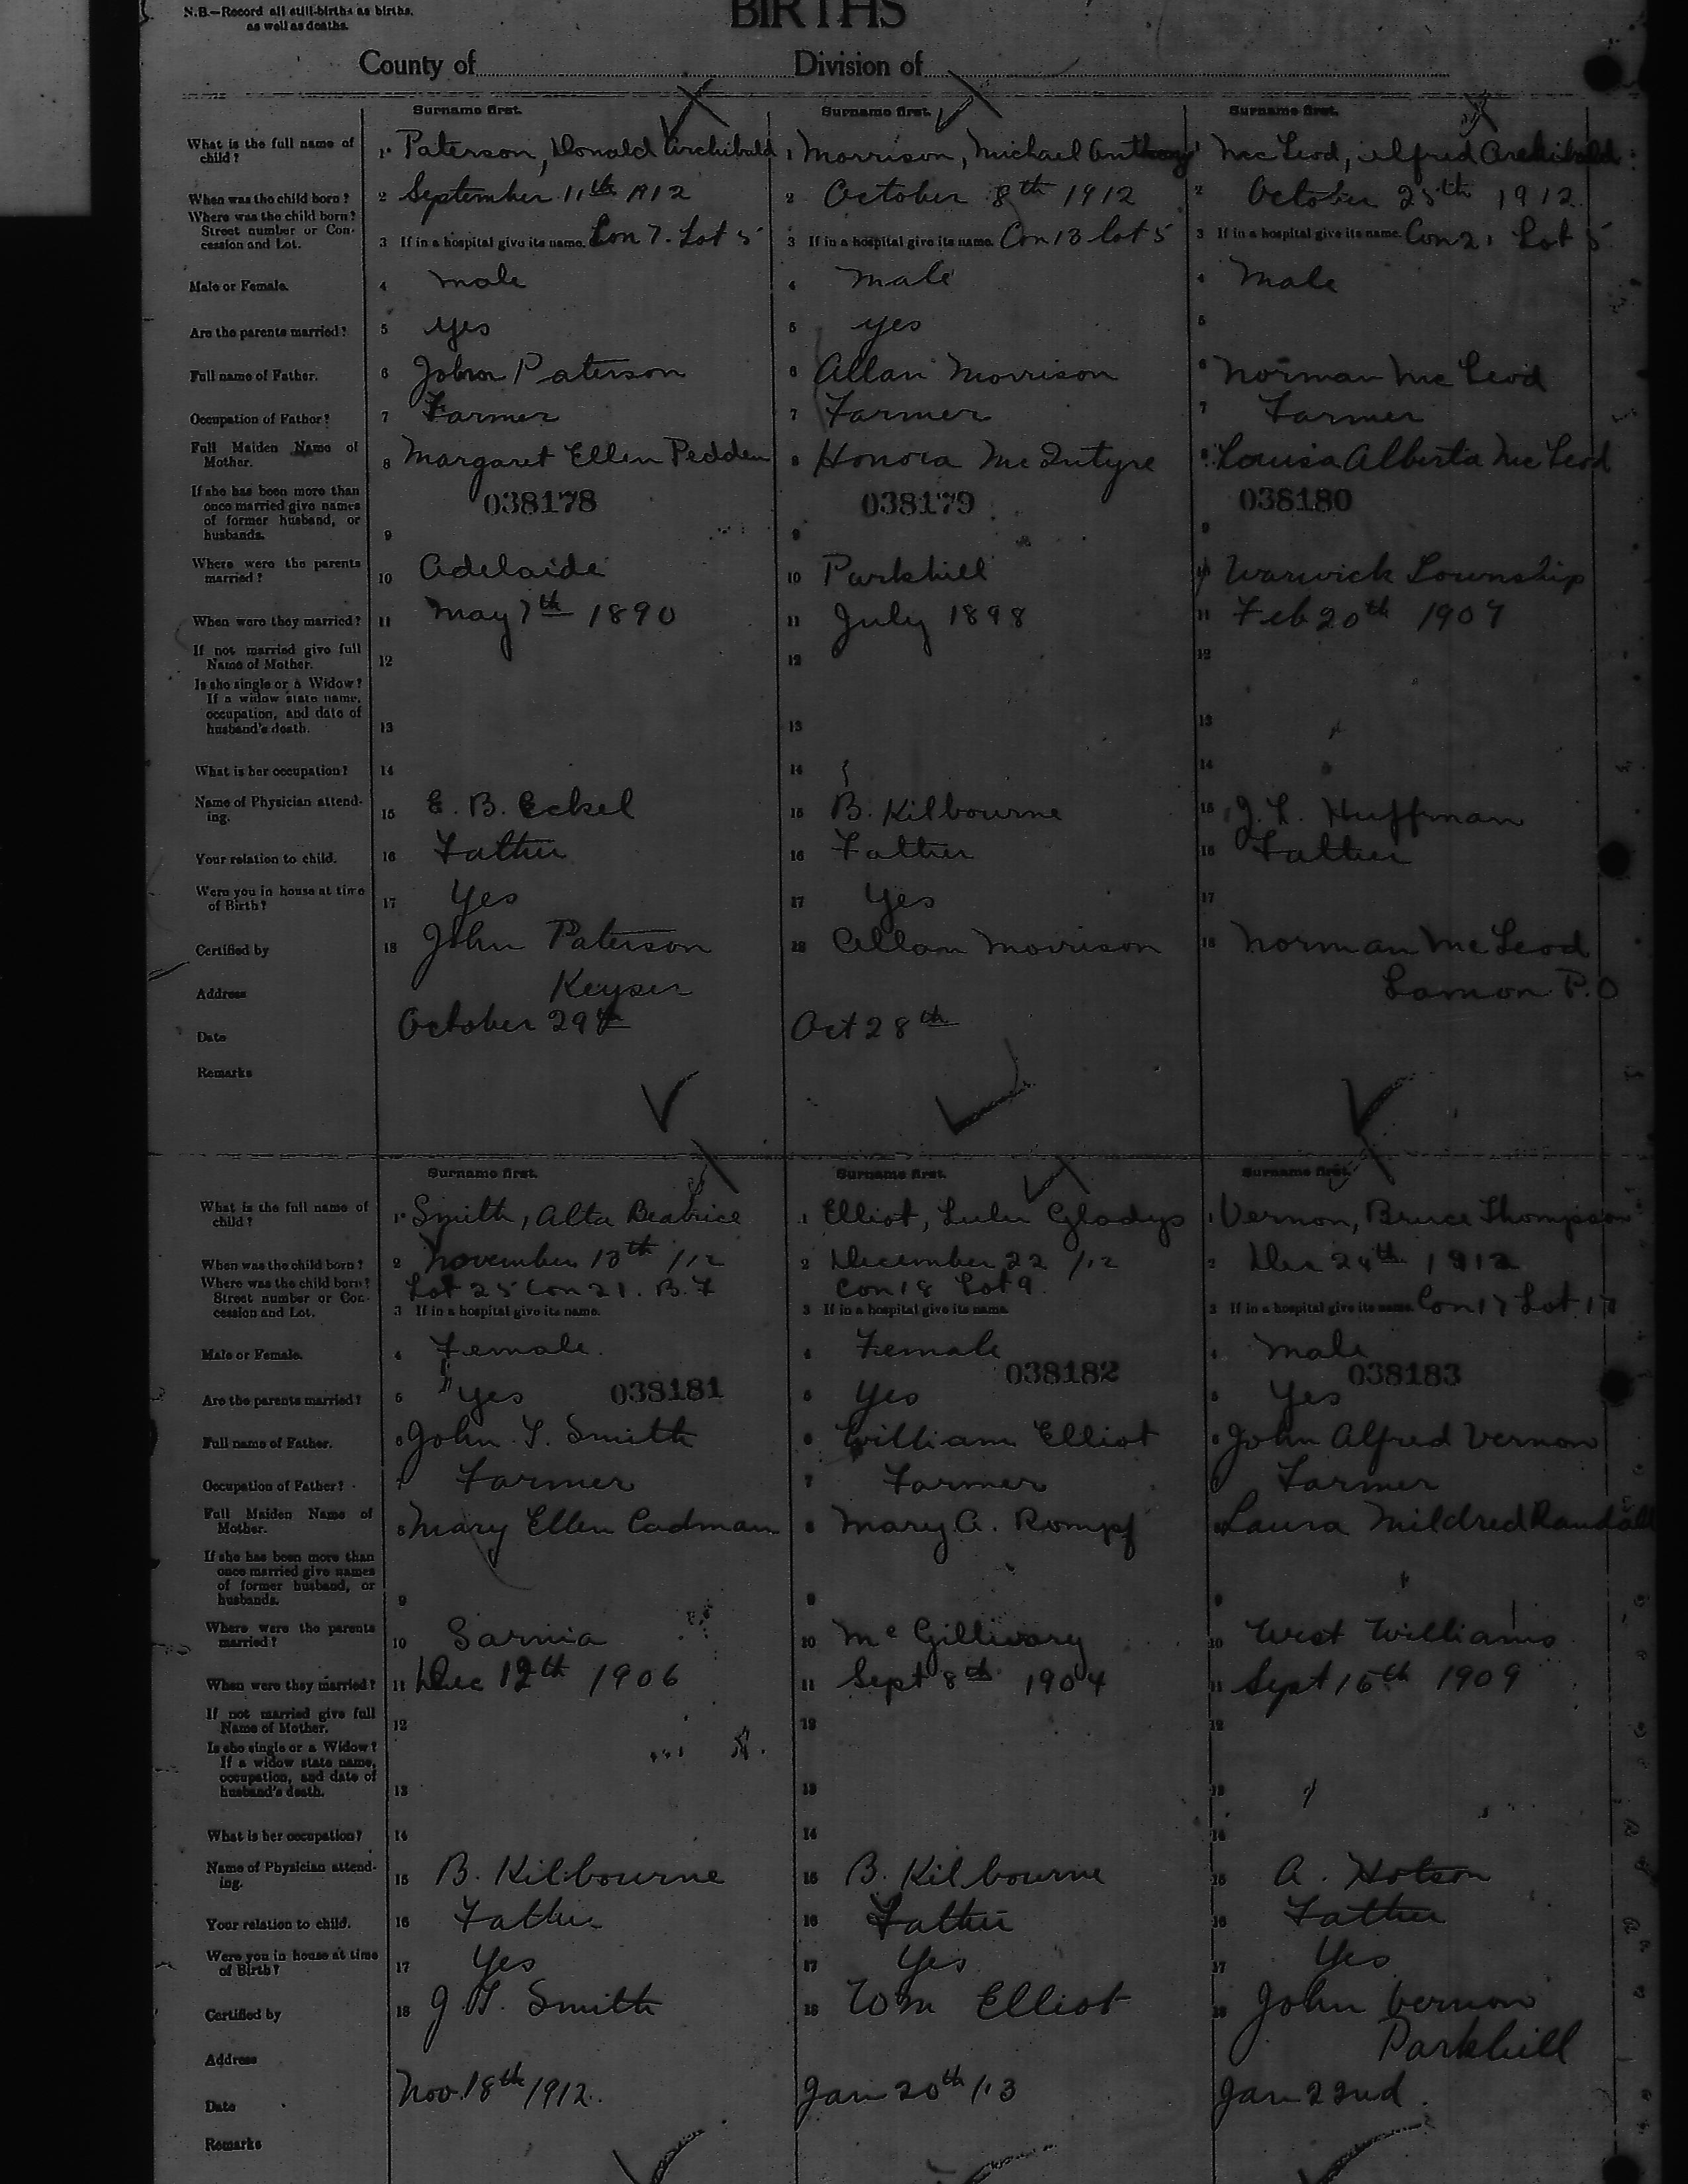 N.B.—Record all still-births as births,
as well as deaths.
BIRTHS
County of Division of
Surname first. Surname first. Surname first.
What is the full name of child? 1 Paterson, Donald Archibald 1 Morrison, Michael Anthony 1 McLeod, Alfred Archibald
When was the child born? 2 September 11th 1912 2 October 8th 1912 2 October 25th 1912
Where was the child born? Street number or Concession and Lot. 3 If in a hospital give its name. Con 7. Lot 5 3 If in a hospital give its name. Con 13 Lot 5 3 If in a hospital give its name. Con 21 Lot 5
Male or Female. 4 male 4 male 4 Male
Are the parents married? 5 yes 5 yes 5
Full name of Father. 6 John Paterson 6 Allan Morrison 6 Norman McLeod
Occupation of Father? 7 Farmer 7 Farmer 7 Farmer
Full Maiden Name of Mother. 8 Margaret Ellen Pedden 8 Honora McIntyre 8 Louisa Alberta McLeod
038178 038179 038180
If she has been more than once married give names of former husband, or husbands. 9 9 9
Where were the parents married? 10 Adelaide 10 Parkhill 10 Warwick Township
When were they married? 11 May 7th 1890 11 July 1898 11 Feb 20th 1907
If not married give full Name of Mother. 12 12 12
Is she single or a Widow? If a widow state name, occupation, and date of husband's death. 13 13 13
What is her occupation? 14 14 14
Name of Physician attending. 15 E. B. Eckel 15 B. Kilbourne 15 J. L. Huffman
Your relation to child. 16 Father 16 Father 16 Father
Were you in house at time of Birth? 17 Yes 17 Yes 17
Certified by 18 John Paterson 18 Allan Morrison 18 Norman McLeod
Address Keyser Lamon P.O
Date October 29th Oct 28th
Remarks
Surname first. Surname first. Surname first.
What is the full name of child? 1 Smith, Alta Beatrice 1 Elliot, Lulu Gladys 1 Vernon, Bruce Thompson
When was the child born? 2 November 13th /12 2 December 22 /12 2 Dec 24th 1912
Where was the child born? Street number or Concession and Lot. Lot 25 Con 21. B. F Con 18 Lot 9.
3 If in a hospital give its name. 3 If in a hospital give its name 3 If in a hospital give its name. Con 17 Lot 17
Male or Female. 4 Female. 4 Female 4 male
038181 038182 038183
Are the parents married? 5 Yes 5 Yes 5 Yes
Full name of Father. 6 John T. Smith 6 William Elliot 6 John Alfred Vernon
Occupation of Father? 7 Farmer 7 Farmer 7 Farmer
Full Maiden Name of Mother. 8 Mary Ellen Cadman 8 Mary A. Rompf 8 Laura Mildred Randall
If she has been more than once married give names of former husband, or husbands. 9 9 9
Where were the parents married? 10 Sarnia 10 McGillivary 10 West Williams
When were they married? 11 Dec 12th 1906 11 Sept 8th 1904 11 Sept 15th 1909
If not married give full Name of Mother. 12 12 12
Is she single or a Widow? If a widow state name, occupation, and date of husband's death. 13 13 13
What is her occupation? 14 14 14
Name of Physician attending. 15 B. Kilbourne 15 B. Kilbourne 15 A. Hotson
Your relation to child. 16 Father 16 Father 16 Father
Were you in house at time of Birth? 17 Yes 17 Yes 17 Yes
Certified by 18 J. T. Smith 18 Wm Elliot 18 John Vernon
Address Parkhill
Date Nov. 18th 1912. Jan 20th /13 Jan 22nd
Remarks